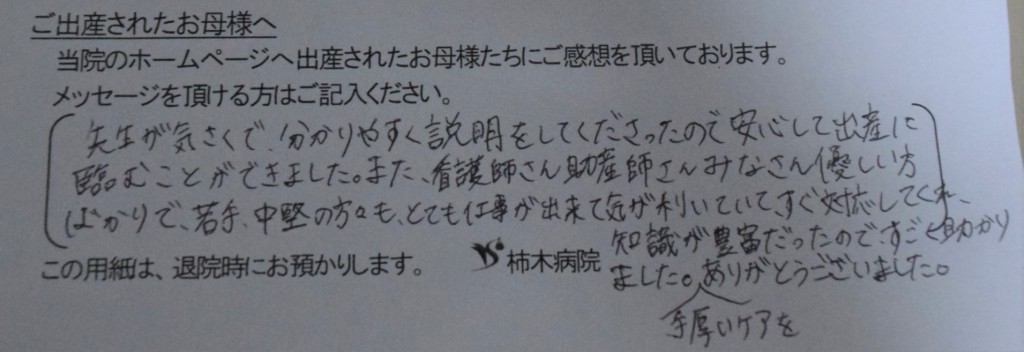 ご出産されたお母様へ
当院のホームページへ出産されたお母様たちにご感想を頂いております。
メッセージを頂ける方はご記入ください。
先生が気さくで、分かりやすく説明をしてくださったので安心して出産に
臨むことができました。また、看護師さん助産師さんみなさん優しい方
ばかりで、若手、中堅の方々も、とても仕事が出来て気が利いていて、すぐ対応してくれ、
知識が豊富だったので、すごく助かり
ました。ありがとうございました。
手厚いケアを
この用紙は、退院時にお預かりします。
柿木病院